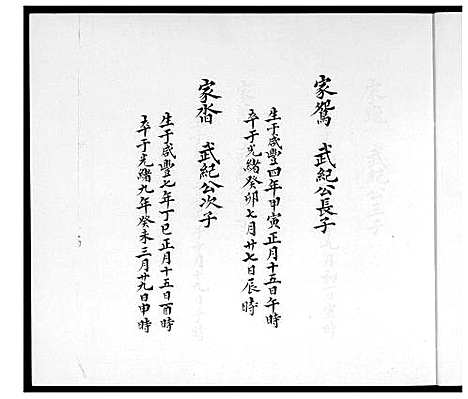 家鴛 武紀公長子
生于咸豐四年甲寅正月十五日午時
卒于光緒癸卯七月廿七日辰時
家沓 武紀公次子
生于咸豐七年丁巳正月十五日酉時
卒于光緒九年癸未三月廿九日申時